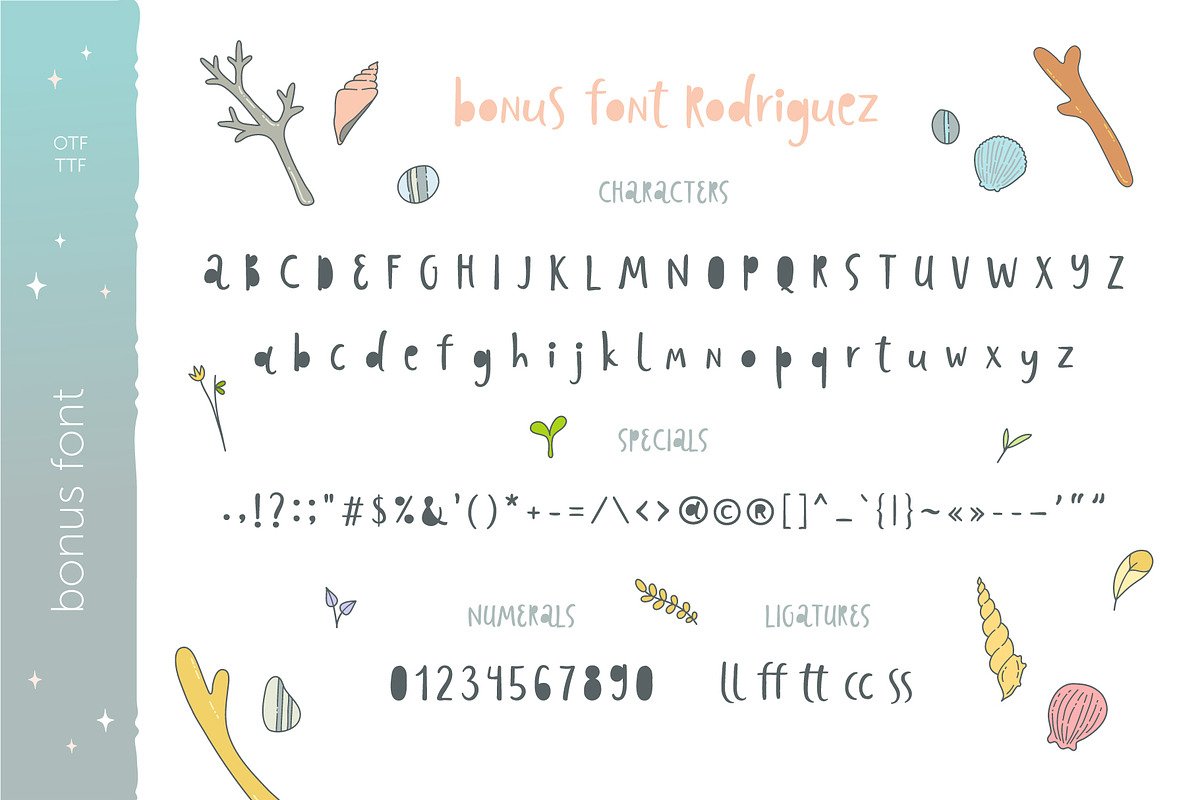 OTF
TTF
bonus font
bonus font Rodriguez
CHARACTERS
A B C D E F G H I J K L M N O P Q R S T U V W X Y Z
a b c d e f g h i j k l m n o p q r t u w x y z
SPECIALS
.,!?:;"#$%&'()*+-=/\<>@©®[]^_`{|}~«»---’“”
NUMERALS
01234567890
LIGATURES
ll ff tt cc ss